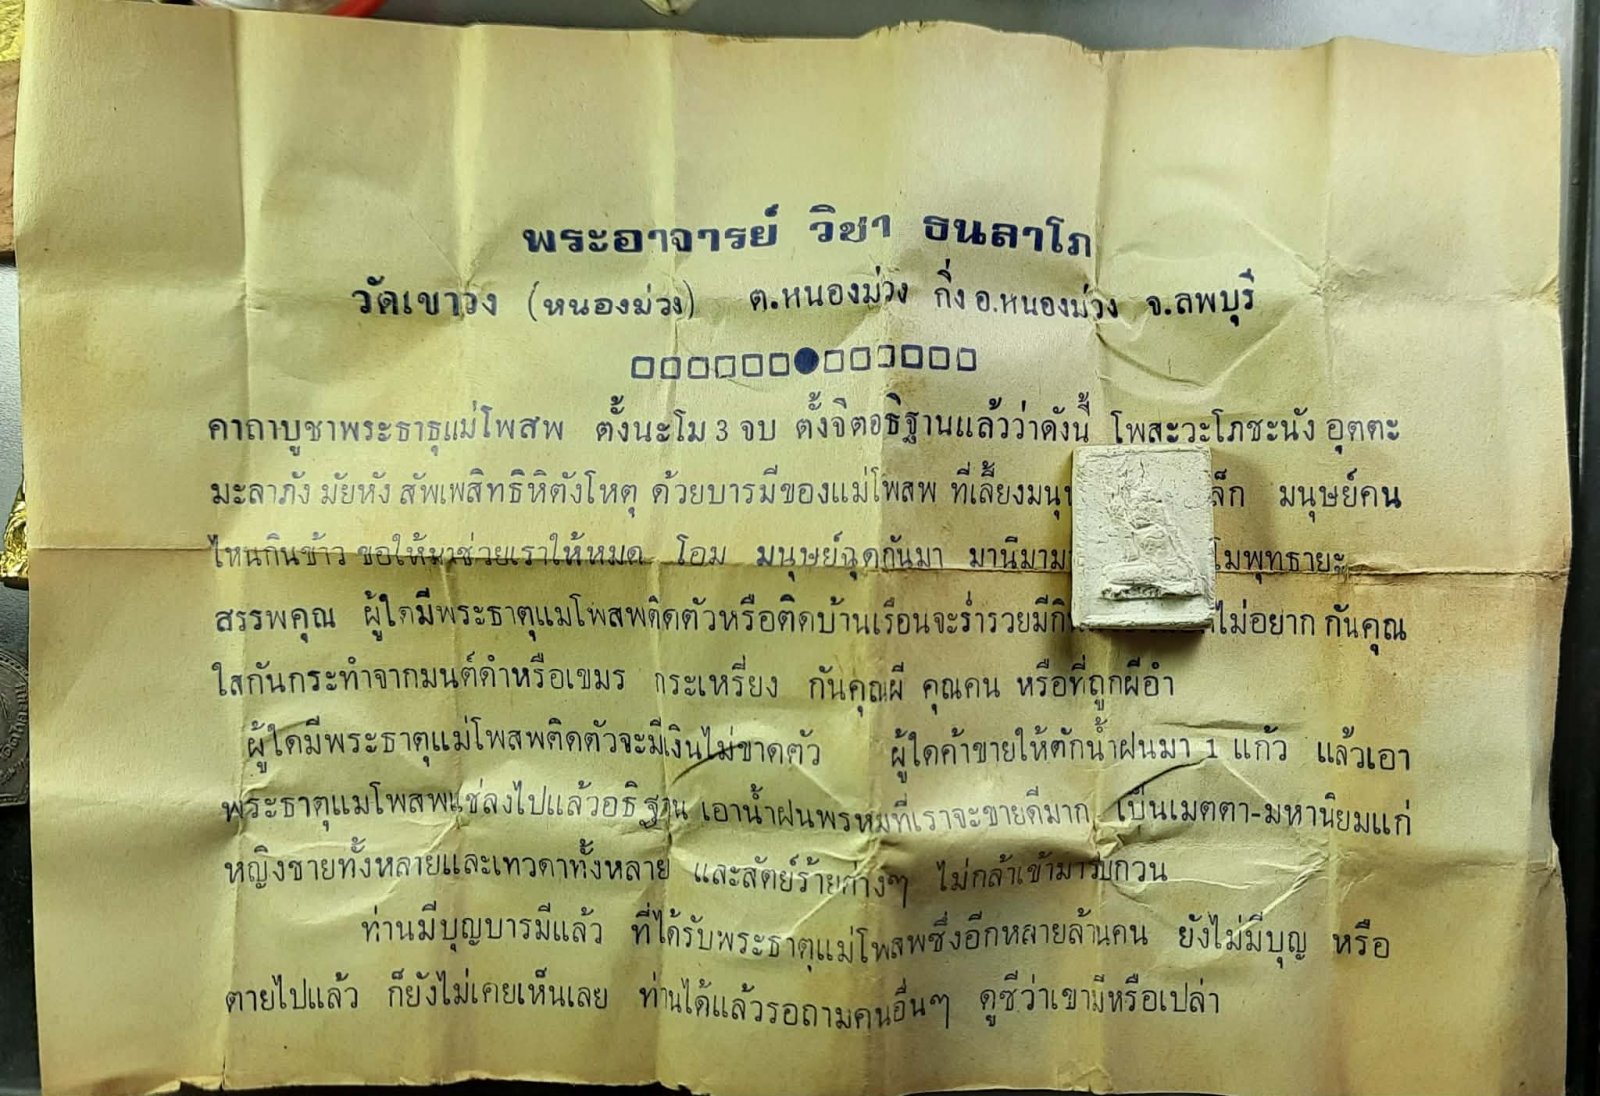 พระอาจารย์ วิชา ธนลาโภ
วัดเขาวง (หนองม่วง) ต.หนองม่วง กิ่ง อ.หนองม่วง จ.ลพบุรี
คาถาบูชาพระธาตุแม่โพสพ ตั้งนะโม 3 จบ ตั้งจิตอธิฐานแล้วว่าดังนี้ โพสะวะโภชะนัง อุตตะ
มะลาภัง มัยหัง สัพเพสิทธิหิตังโหตุ ด้วยบารมีของแม่โพสพ ที่เลี้ยงมนุ ล็ก มนุษย์คน
ไหนกินข้าว ขอให้มาช่วยเราให้หมด โอม มนุษย์ฉุดกันมา มานิมาม โมพุทธายะ
สรรพคุณ ผู้ใดมีพระธาตุแม่โพสพติดตัวหรือติดบ้านเรือนจะร่ำรวยมีกิน ไม่อยาก กันคุณ
ใสกันกระทำจากมนต์ดำหรือเขมร กระเหรี่ยง กันคุณผี คุณคน หรือที่ถูกผีอำ
ผู้ใดมีพระธาตุแม่โพสพติดตัวจะมีเงินไม่ขาดตัว ผู้ใดค้าขายให้ตักน้ำฝนมา 1 แก้ว แล้วเอา
พระธาตุแม่โพสพแช่ลงไปแล้วอธิฐาน เอาน้ำฝนพรหมที่เราจะขายดีมาก เป็นเมตตา-มหานิยมแก่
หญิงชายทั้งหลายและเทวดาทั้งหลาย และสัตย์ร้ายต่างๆ ไม่กล้าเข้ามารบกวน
ท่านมีบุญบารมีแล้ว ที่ได้รับพระธาตุแม่โพสพซึ่งอีกหลายล้านคน ยังไม่มีบุญ หรือ
ตายไปแล้ว ก็ยังไม่เคยเห็นเลย ท่านได้แล้วรอถามคนอื่นๆ ดูซีว่าเขามีหรือเปล่า